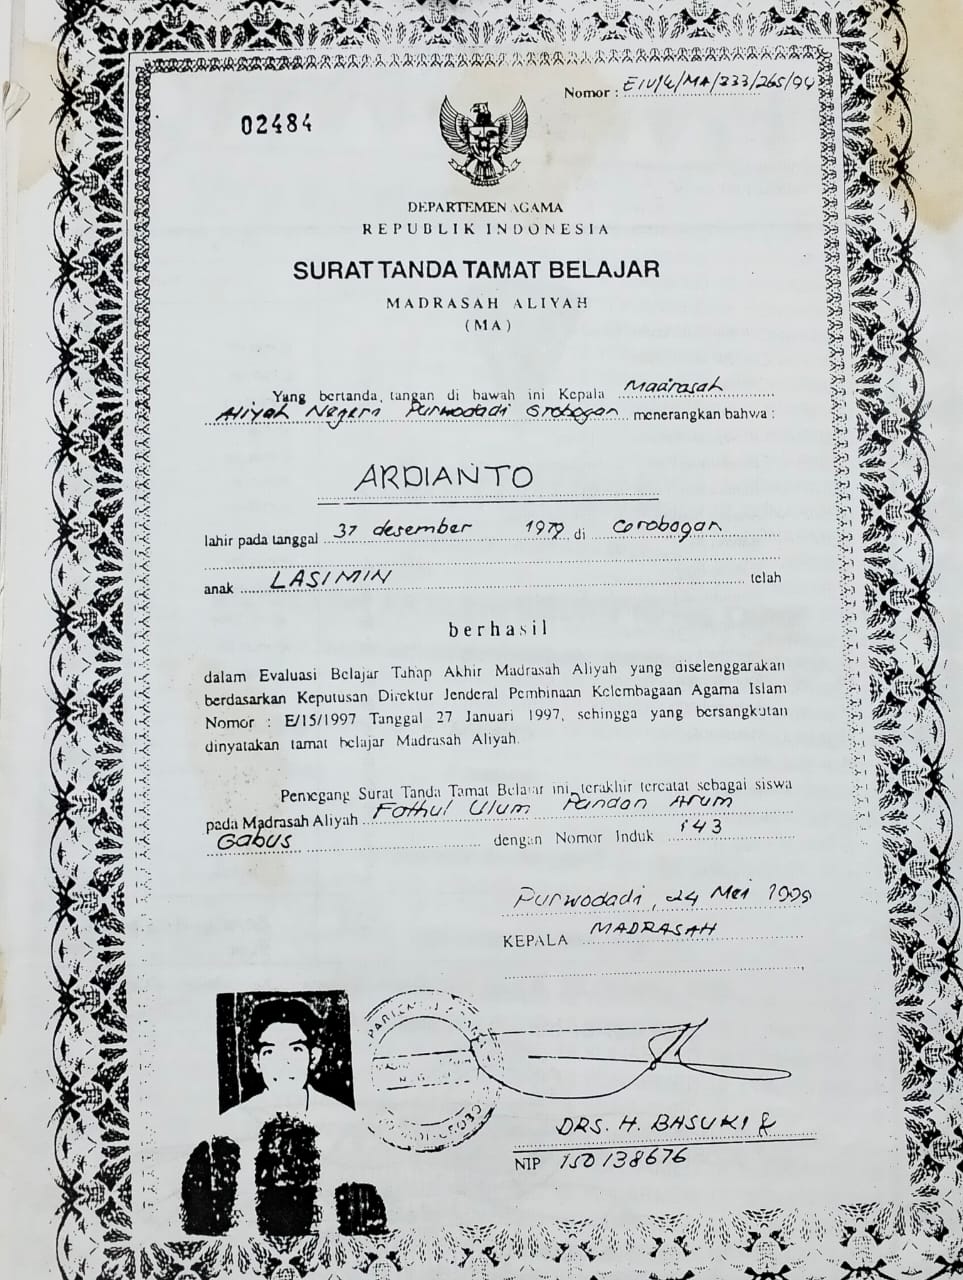 Nomor : EIV/4/MA/333/265/94
02484
DEPARTEMEN AGAMA
REPUBLIK INDONESIA
SURAT TANDA TAMAT BELAJAR
MADRASAH ALIYAH
(MA)
Yang bertanda tangan di bawah ini Kepala Madrasah
Aliyah Negeri Purwodadi Grobogan menerangkan bahwa :
ARDIANTO
lahir pada tanggal 31 desember 1979 di Grobogan
anak LASIMIN telah
berhasil
dalam Evaluasi Belajar Tahap Akhir Madrasah Aliyah yang diselenggarakan
berdasarkan Keputusan Direktur Jenderal Pembinaan Kelembagaan Agama Islam
Nomor : E/15/1997 Tanggal 27 Januari 1997, sehingga yang bersangkutan
dinyatakan tamat belajar Madrasah Aliyah.
Pemegang Surat Tanda Tamat Belajar ini, terakhir tercatat sebagai siswa
pada Madrasah Aliyah Fathul Ulum Pandan Arum
Gabus dengan Nomor Induk 143
Purwodadi, 24 Mei 1999
KEPALA MADRASAH
DRS. H. BASUKI
NIP 150138676